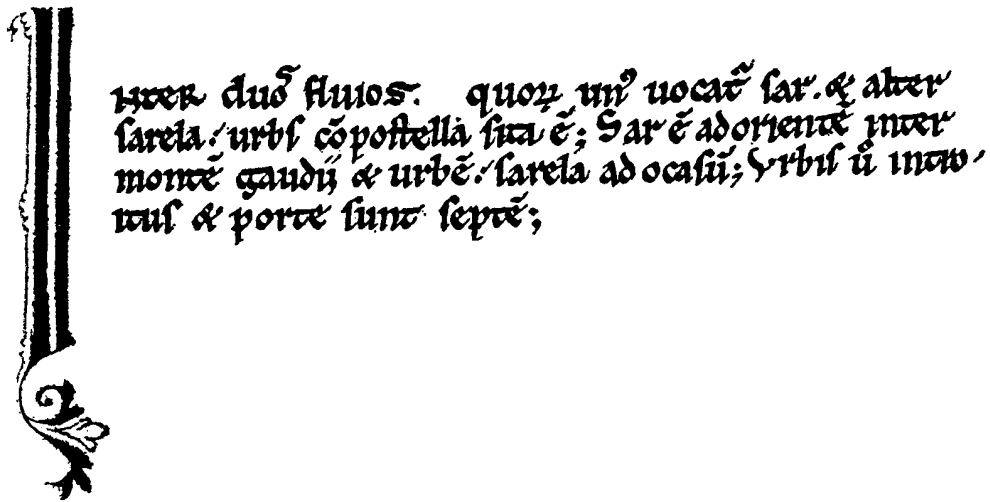 NTER duos fluuios. quoꝝ unꝰ uocat̃ sar. & alter
sarela. urbs cõpostella sita ẽ; Sar ẽ ad orientẽ inter
montẽ gaudij & urbẽ. sarela ad ocasũ; Vrbis ů intro-
itus & porte sunt septẽ;